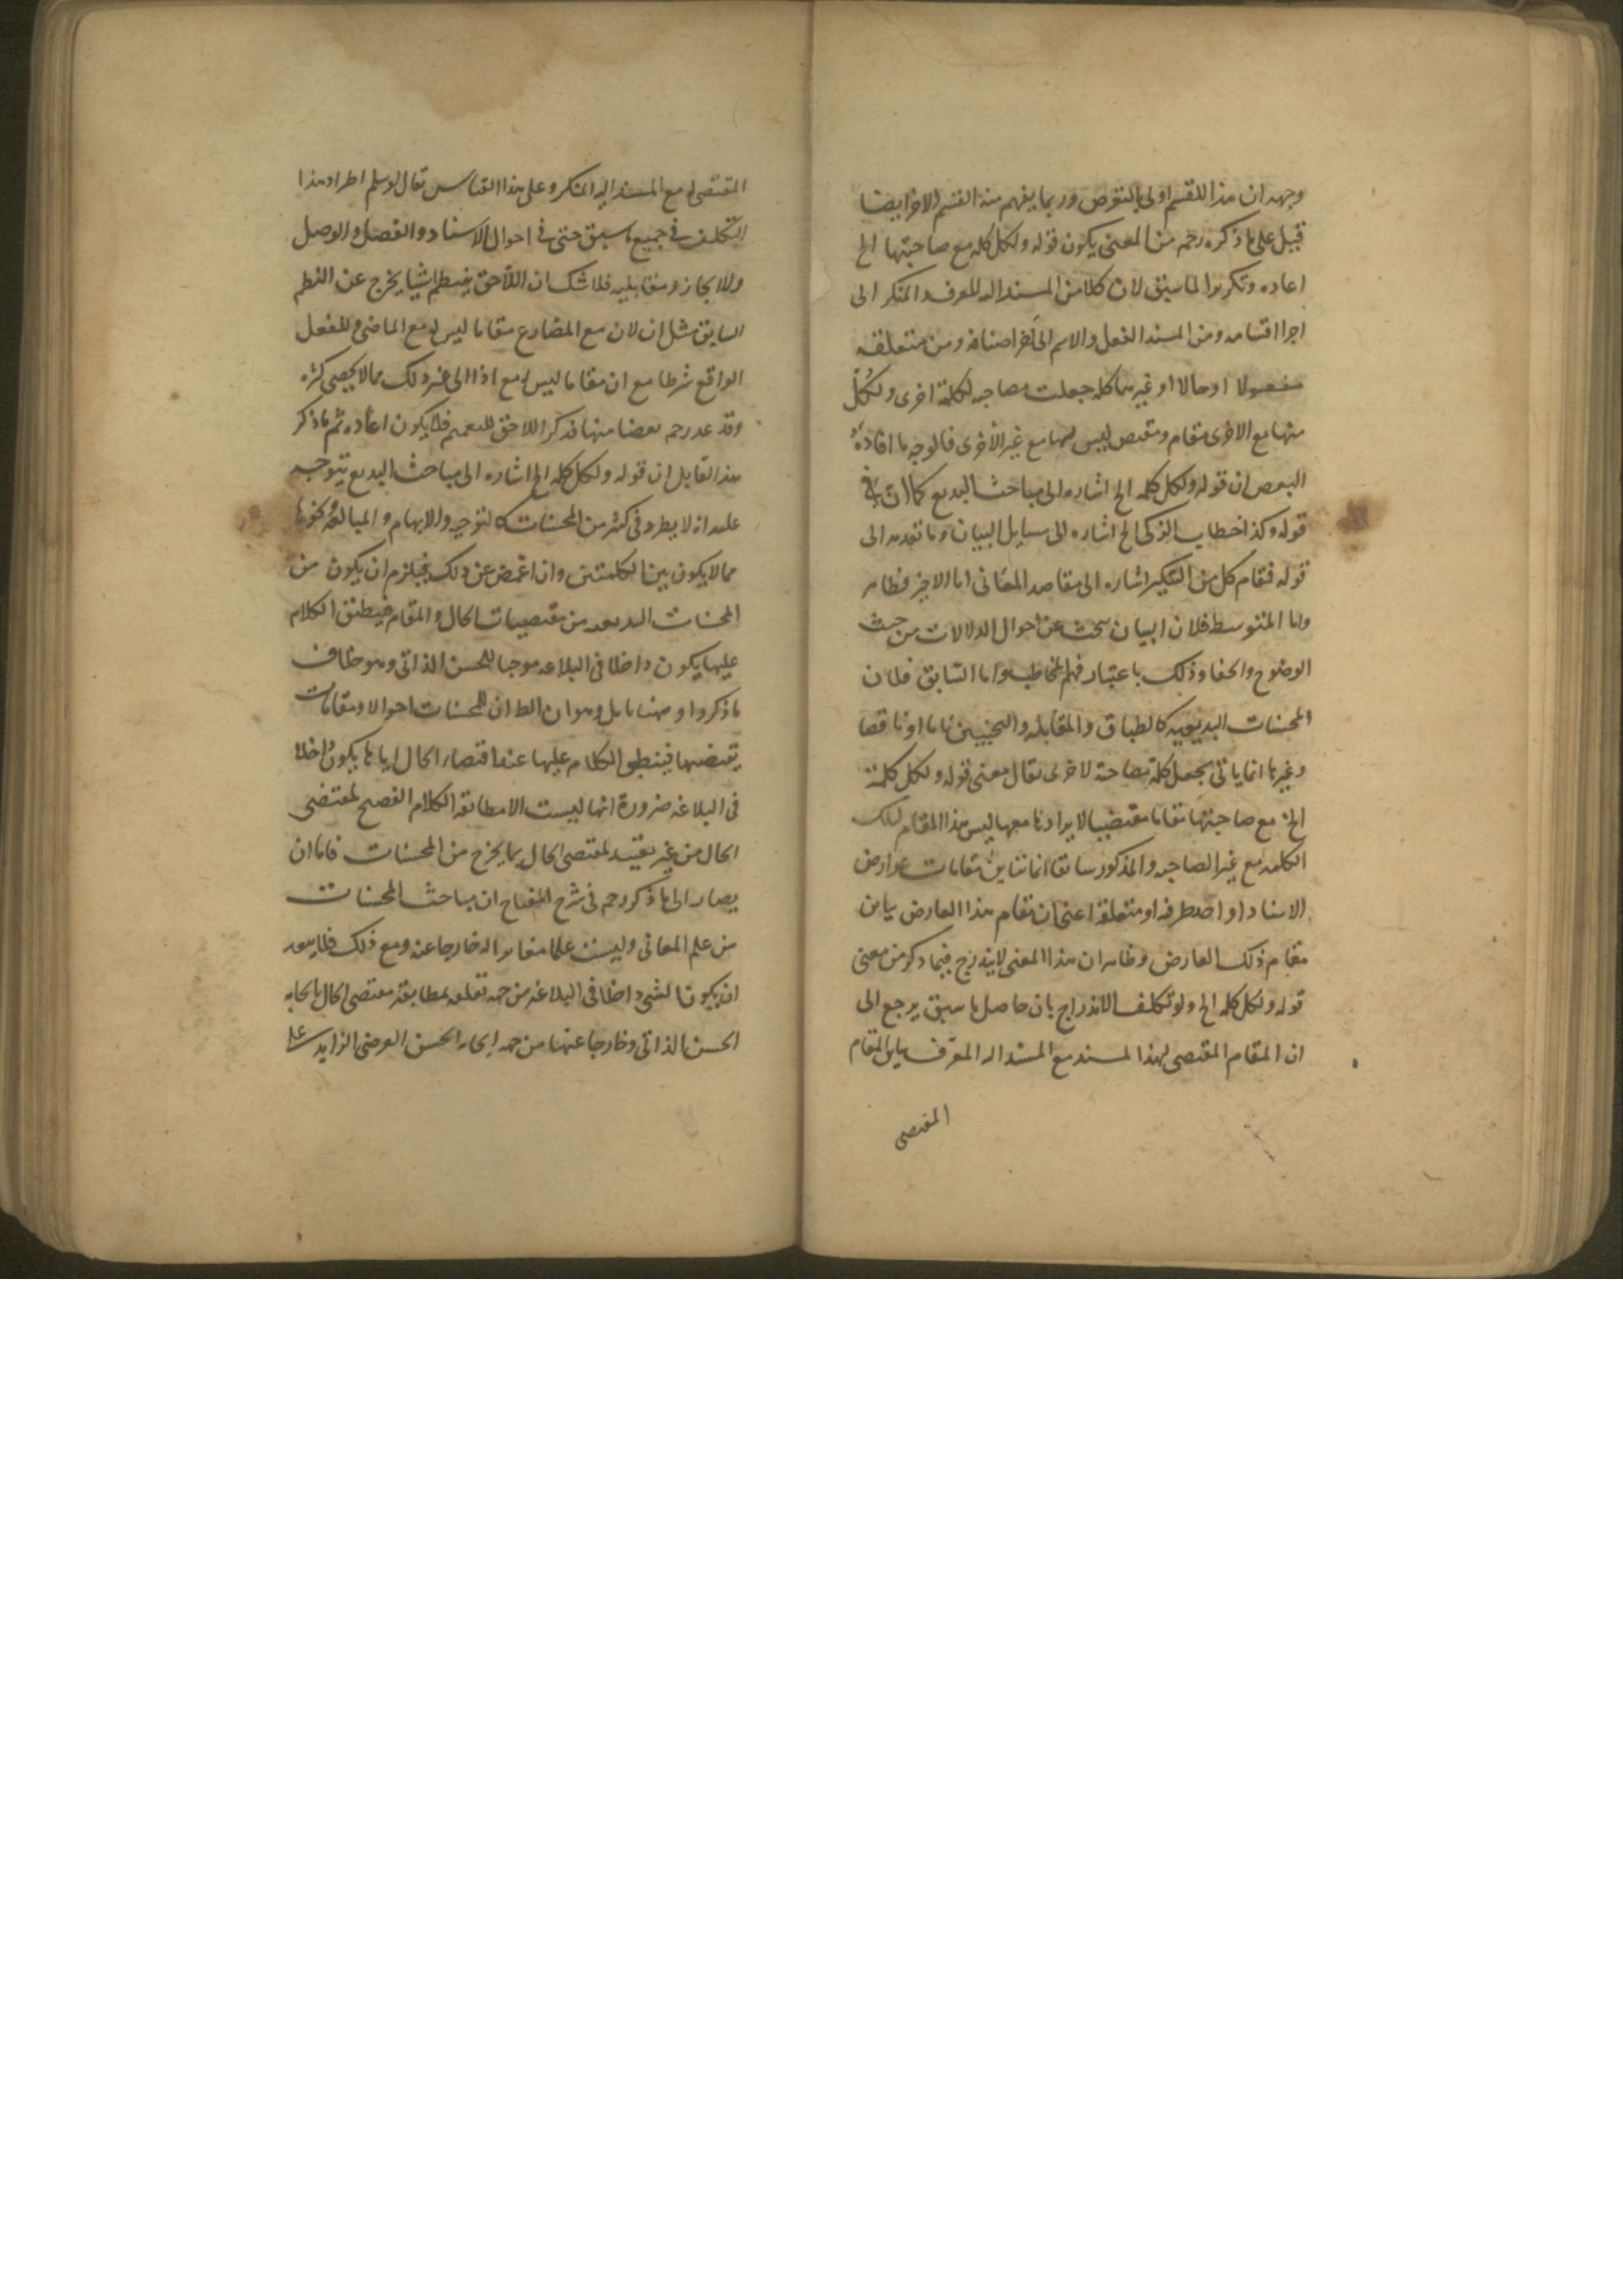 وجهه ان هذا القسم اولى بالتعرض وربما يفهم منه القسم الاخر ايضا
قيل على ما ذكره رحمه من المعنى يكون قوله ولكل كلمه مع صاحبتها الخ
اعاده وتكريرا لما سبق لان كلا من المسند اليه المعرف والمنكر الى
اجرا اقسامه ومن المسند الفعل والاسم الى آخر اصنافه ومن متعلقه
مفعولا او حالا او غيرهما كلمه جعلت مصاحبه لكلمة اخرى ولكلٍّ
منها مع الاخرى مقام ومقتض ليس لها مع غير الأخرى فالوجه ما افاده
البعض ان قوله ولكل كلمه الخ اشاره الى مباحث البديع كما ان
قوله وكذا خطاب الذكى الخ اشاره الى مسايل البيان وما تقدمه الى
قوله فمقام كل من التنكير اشاره الى مقاصد المعانى اما الاخير فظاهر
واما المتوسط فلان البيان يبحث عن احوال الدلالات من حيث
الوضوح والخفا وذلك باعتبار فهم المخاطب واما السابق فلان
المحسنات البديعيه كالطباق والمقابله والتجنيس تاما او ناقصا
وغيرها انما ياتى بجعل كلمة مصاحبة لاخرى يقال معنى قوله ولكل كلمة
الخ مع صاحبتها مقاما مقتضيا لايرادها معها ليس هذا المقام لتلك
الكلمه مع غير الصاحبه والمذكور سابقا انما تباين مقامات عوارض
الاسناد او احد طرفيه او متعلقه اعنى ان مقام هذا العارض يباين
مقام ذلك العارض وظاهر ان هذا المعنى لا يندرج فيما ذكر من معنى
قوله ولكل كلمه الخ ولو تكلف الاندراج بان حاصل ما سبق يرجع الى
ان المقام المقتضى لهذا المسند مع المسند اليه المعرف يباين المقام
المقتضى
المقتضى له مع المسند اليه المنكر وعلى هذا القياس يقال لو سلم اطراد هذا
التكلف فى جميع ما سبق حتى فى احوال الاسناد والفصل والوصل
والايجاز ومقابليه فلا شك ان اللاحق ينتظم اشيا يخرج عن النظم
السابق مثل ان لان مع المضارع مقاما ليس له مع الماضى وللفعل
الواقع شرطا مع ان مقاما ليس له مع اذا الى غير ذلك مما لا يحصى كثره
وقد عد رحمه بعضا منها فذكر اللاحق للتعميم فلا يكون اعاده ثم ما ذكر
هذا القايل ان قوله ولكل كلمه الخ اشاره الى مباحث البديع يتوجه
عليه انه لا يطرد فى كثير من المحسنات كالتوجيه والايهام والمبالغه ونحوها
مما لا يكون بين الكلمتين وان اغمض عن ذلك فيلزم ان يكون من
المحسنات البديعيه من مقتضيات الحال والمقام فيطبق الكلام
عليها يكون داخلا فى البلاغه موجبا للحسن الذاتى وهو خلاف
ما ذكروا وههنا تامل وهو ان الظ ان للمحسنات احوالا ومقامات
يقتضيها فينطبق الكلام عليها عند اقتضاء الحال اياها يكون داخلا
فى البلاغه ضرورة انها ليست الا مطابقه الكلام الفصيح لمقتضى
الحال من غير تقييد لمقتضى الحال بما يخرج من المحسنات فاما ان
يصار الى ما ذكر رحمه فى شرح المفتاح ان مباحث المحسنات
من علم المعانى وليست علما مغايرا له خارجا عنه ومع ذلك فلا يبعد
ان يكون الشىء داخلا فى البلاغه من جهه تعلقه بمطابقة مقتضى الحال بايجابه
الحسن الذاتى وخارجا عنها من جهه ايجابه الحسن العرضى الزايد على